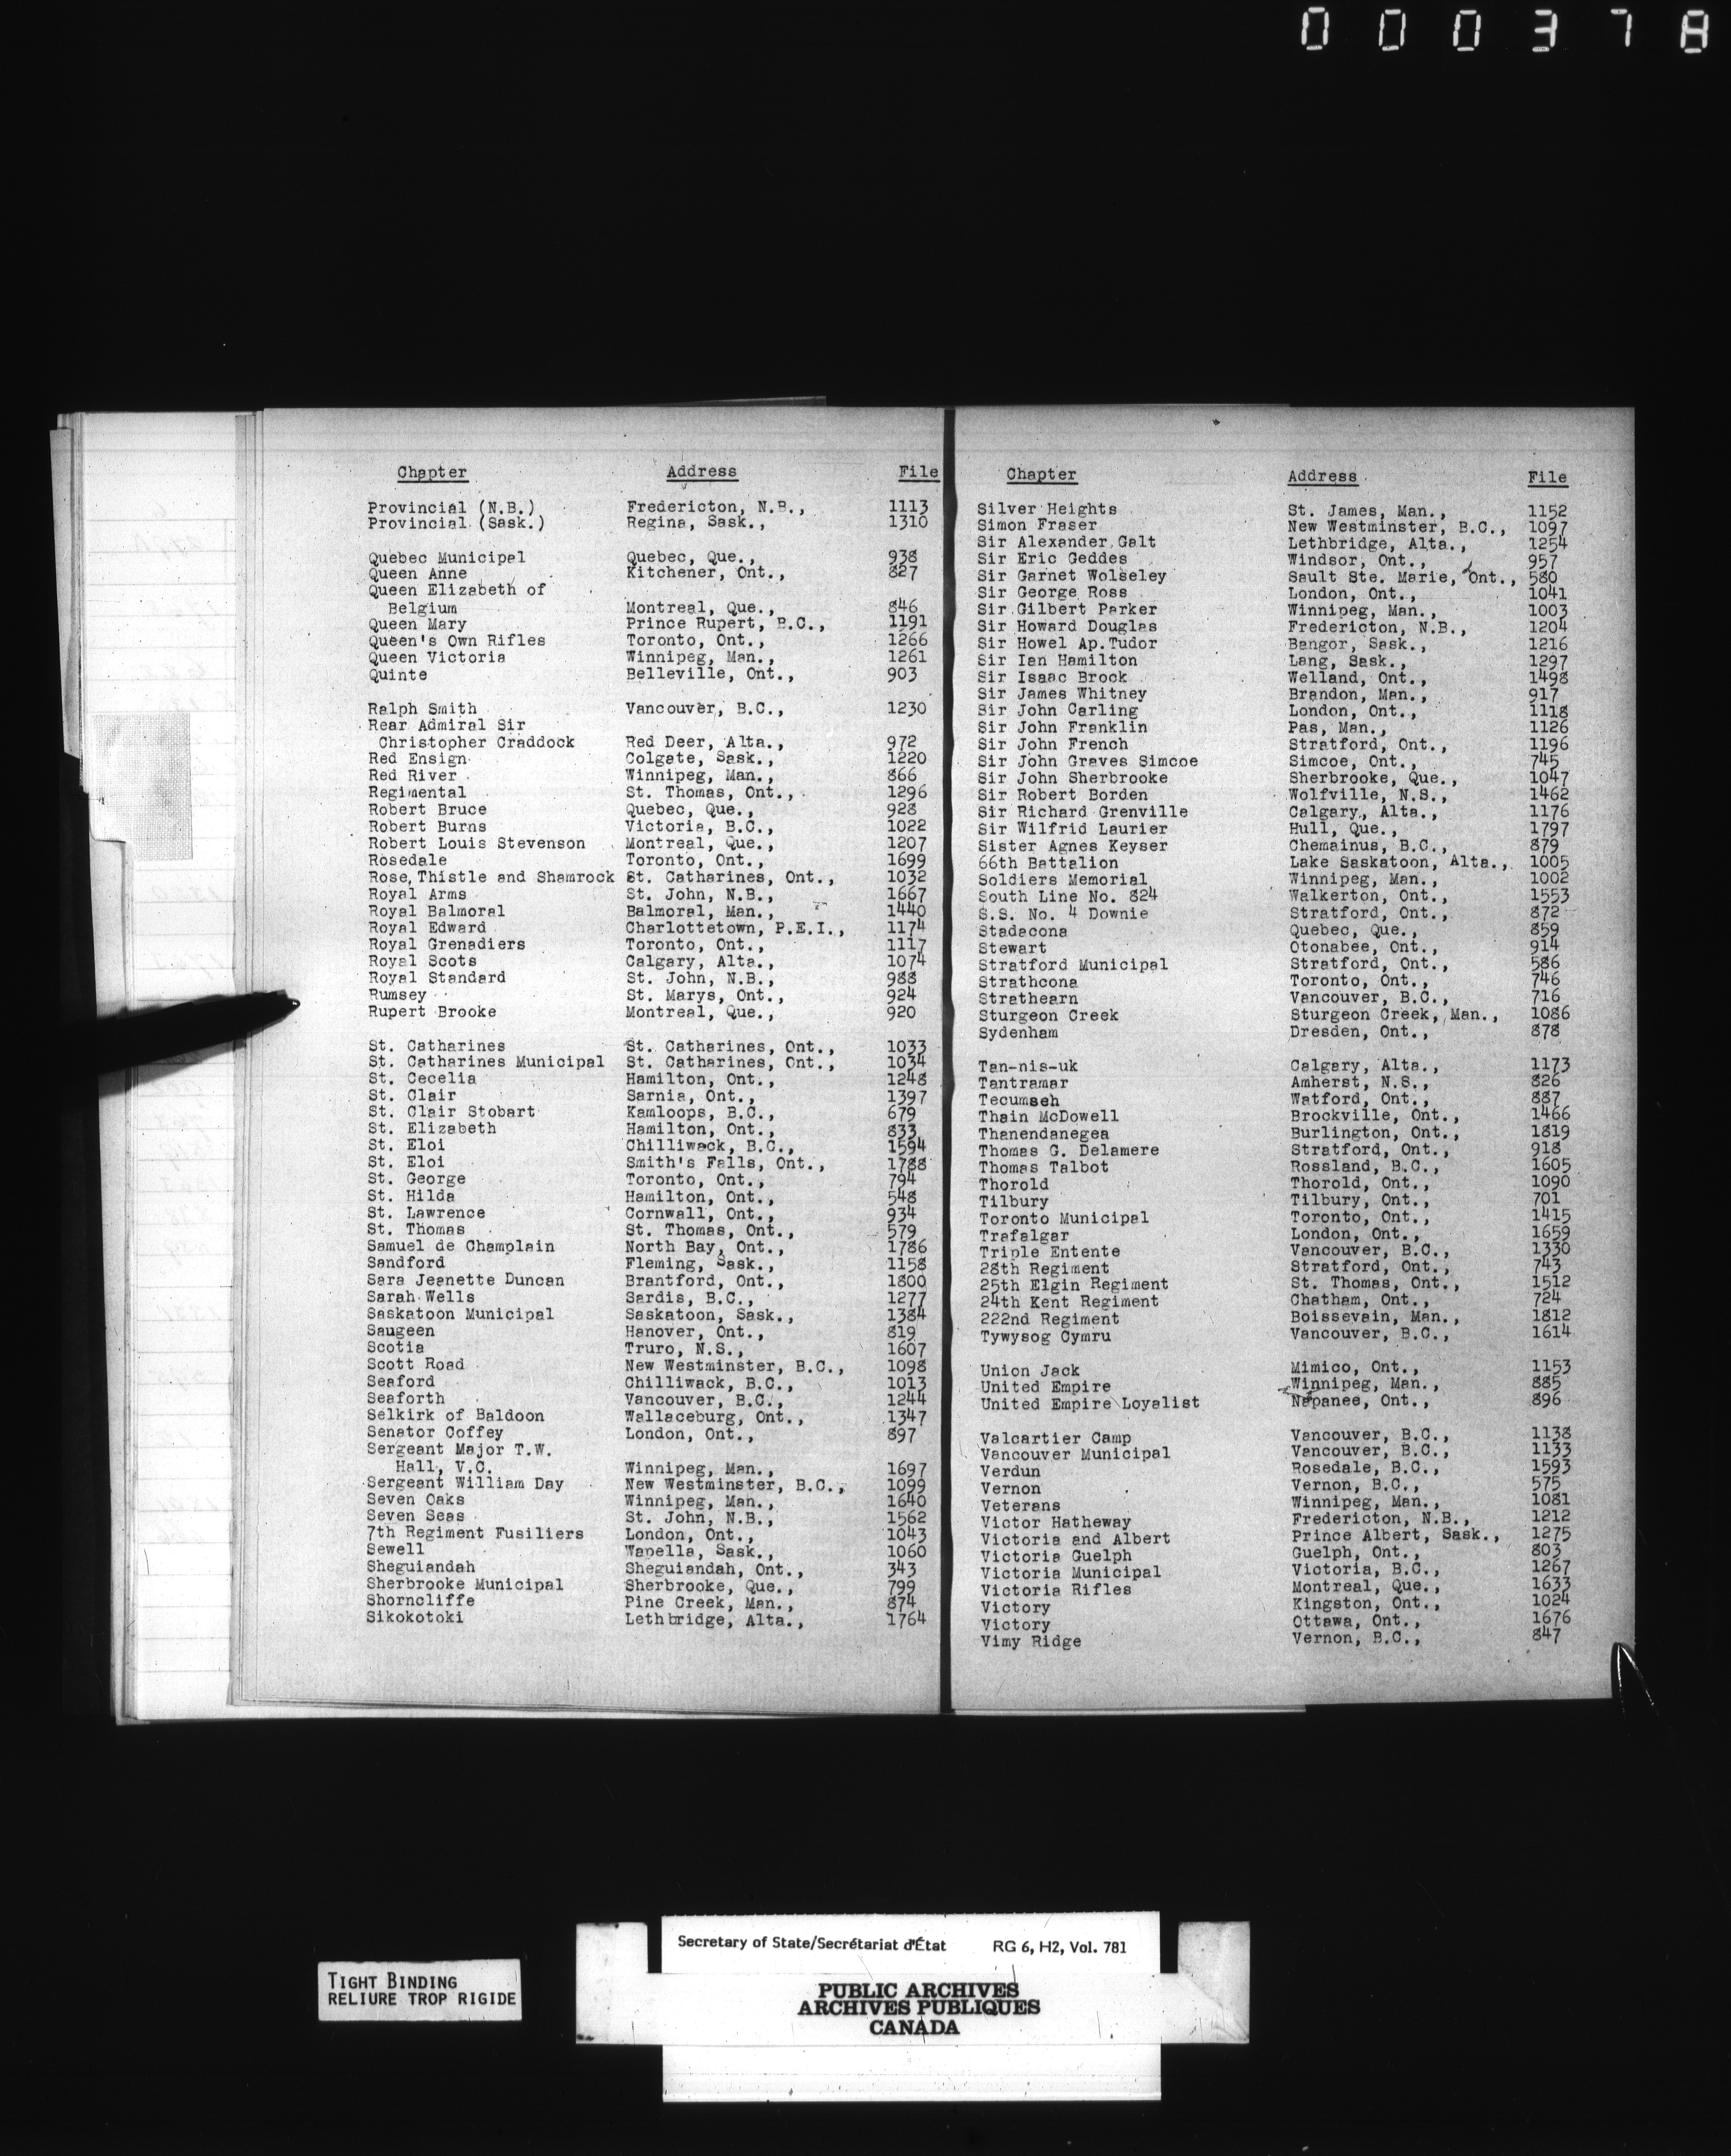 000378
Chapter Address File
Provincial (N.B.) Fredericton, N.B., 1113
Provincial (Sask.) Regina, Sask., 1310
Quebec Municipal Quebec, Que., 938
Queen Anne Kitchener, Ont., 827
Queen Elizabeth of
Belgium Montreal, Que., 846
Queen Mary Prince Rupert, B.C., 1191
Queen's Own Rifles Toronto, Ont., 1266
Queen Victoria Winnipeg, Man., 1261
Quinte Belleville, Ont., 903
Ralph Smith Vancouver, B.C., 1230
Rear Admiral Sir
Christopher Craddock Red Deer, Alta., 972
Red Ensign Colgate, Sask., 1220
Red River Winnipeg, Man., 866
Regimental St. Thomas, Ont., 1296
Robert Bruce Quebec, Que., 928
Robert Burns Victoria, B.C., 1022
Robert Louis Stevenson Montreal, Que., 1207
Rosedale Toronto, Ont., 1699
Rose, Thistle and Shamrock St. Catharines, Ont., 1032
Royal Arms St. John, N.B., 1667
Royal Balmoral Balmoral, Man., 1440
Royal Edward Charlottetown, P.E.I., 1174
Royal Grenadiers Toronto, Ont., 1117
Royal Scots Calgary, Alta., 1074
Royal Standard St. John, N.B., 988
Rumsey St. Marys, Ont., 924
Rupert Brooke Montreal, Que., 920
St. Catharines St. Catharines, Ont., 1033
St. Catharines Municipal St. Catharines, Ont., 1034
St. Cecelia Hamilton, Ont., 1248
St. Clair Sarnia, Ont., 1397
St. Clair Stobart Kamloops, B.C., 679
St. Elizabeth Hamilton, Ont., 833
St. Eloi Chilliwack, B.C., 1594
St. Eloi Smith's Falls, Ont., 1788
St. George Toronto, Ont., 794
St. Hilda Hamilton, Ont., 548
St. Lawrence Cornwall, Ont., 934
St. Thomas St. Thomas, Ont., 579
Samuel de Champlain North Bay, Ont., 1786
Sandford Fleming, Sask., 1158
Sara Jeanette Duncan Brantford, Ont., 1800
Sarah Wells Sardis, B.C., 1277
Saskatoon Municipal Saskatoon, Sask., 1384
Saugeen Hanover, Ont., 819
Scotia Truro, N.S., 1607
Scott Road New Westminster, B.C., 1098
Seaford Chilliwack, B.C., 1013
Seaforth Vancouver, B.C., 1244
Selkirk of Baldoon Wallaceburg, Ont., 1347
Senator Coffey London, Ont., 897
Sergeant Major T.W.
Hall, V.C. Winnipeg, Man., 1697
Sergeant William Day New Westminster, B.C., 1099
Seven Oaks Winnipeg, Man., 1640
Seven Seas St. John, N.B., 1562
7th Regiment Fusiliers London, Ont., 1043
Sewell Wapella, Sask., 1060
Sheguiandah Sheguiandah, Ont., 343
Sherbrooke Municipal Sherbrooke, Que., 799
Shorncliffe Pine Creek, Man., 874
Sikokotoki Lethbridge, Alta., 1764
Chapter Address File
Silver Heights St. James, Man., 1152
Simon Fraser New Westminster, B.C., 1097
Sir Alexander Galt Lethbridge, Alta., 1254
Sir Eric Geddes Windsor, Ont., 957
Sir Garnet Wolseley Sault Ste. Marie, Ont., 580
Sir George Ross London, Ont., 1041
Sir Gilbert Parker Winnipeg, Man., 1003
Sir Howard Douglas Fredericton, N.B., 1204
Sir Howel Ap.Tudor Bangor, Sask., 1216
Sir Ian Hamilton Lang, Sask., 1297
Sir Isaac Brock Welland, Ont., 1498
Sir James Whitney Brandon, Man., 917
Sir John Carling London, Ont., 1118
Sir John Franklin Pas, Man., 1126
Sir John French Stratford, Ont., 1196
Sir John Graves Simcoe Simcoe, Ont., 745
Sir John Sherbrooke Sherbrooke, Que., 1047
Sir Robert Borden Wolfville, N.S., 1462
Sir Richard Grenville Calgary, Alta., 1176
Sir Wilfrid Laurier Hull, Que., 1797
Sister Agnes Keyser Chemainus, B.C., 879
66th Battalion Lake Saskatoon, Alta., 1005
Soldiers Memorial Winnipeg, Man., 1002
South Line No. 824 Walkerton, Ont., 1553
S.S. No. 4 Downie Stratford, Ont., 872
Stadacona Quebec, Que., 859
Stewart Otonabee, Ont., 914
Stratford Municipal Stratford, Ont., 586
Strathcona Toronto, Ont., 746
Strathearn Vancouver, B.C., 716
Sturgeon Creek Sturgeon Creek, Man., 1086
Sydenham Dresden, Ont., 878
Tan-nis-uk Calgary, Alta., 1173
Tantramar Amherst, N.S., 826
Tecumseh Watford, Ont., 887
Thain McDowell Brockville, Ont., 1466
Thanendanegea Burlington, Ont., 1819
Thomas G. Delamere Stratford, Ont., 918
Thomas Talbot Rossland, B.C., 1605
Thorold Thorold, Ont., 1090
Tilbury Tilbury, Ont., 701
Toronto Municipal Toronto, Ont., 1415
Trafalgar London, Ont., 1659
Triple Entente Vancouver, B.C., 1330
28th Regiment Stratford, Ont., 743
25th Elgin Regiment St. Thomas, Ont., 1512
24th Kent Regiment Chatham, Ont., 724
222nd Regiment Boissevain, Man., 1812
Tywysog Cymru Vancouver, B.C., 1614
Union Jack Mimico, Ont., 1153
United Empire Winnipeg, Man., 885
United Empire Loyalist Napanee, Ont., 896
Valcartier Camp Vancouver, B.C., 1138
Vancouver Municipal Vancouver, B.C., 1133
Verdun Rosedale, B.C., 1593
Vernon Vernon, B.C., 575
Veterans Winnipeg, Man., 1081
Victor Hatheway Fredericton, N.B., 1212
Victoria and Albert Prince Albert, Sask., 1275
Victoria Guelph Guelph, Ont., 803
Victoria Municipal Victoria, B.C., 1267
Victoria Rifles Montreal, Que., 1633
Victory Kingston, Ont., 1024
Victory Ottawa, Ont., 1676
Vimy Ridge Vernon, B.C., 847
Secretary of State/Secrétariat d'État RG 6, H2, Vol. 781
TIGHT BINDING
RELIURE TROP RIGIDE
PUBLIC ARCHIVES
ARCHIVES PUBLIQUES
CANADA